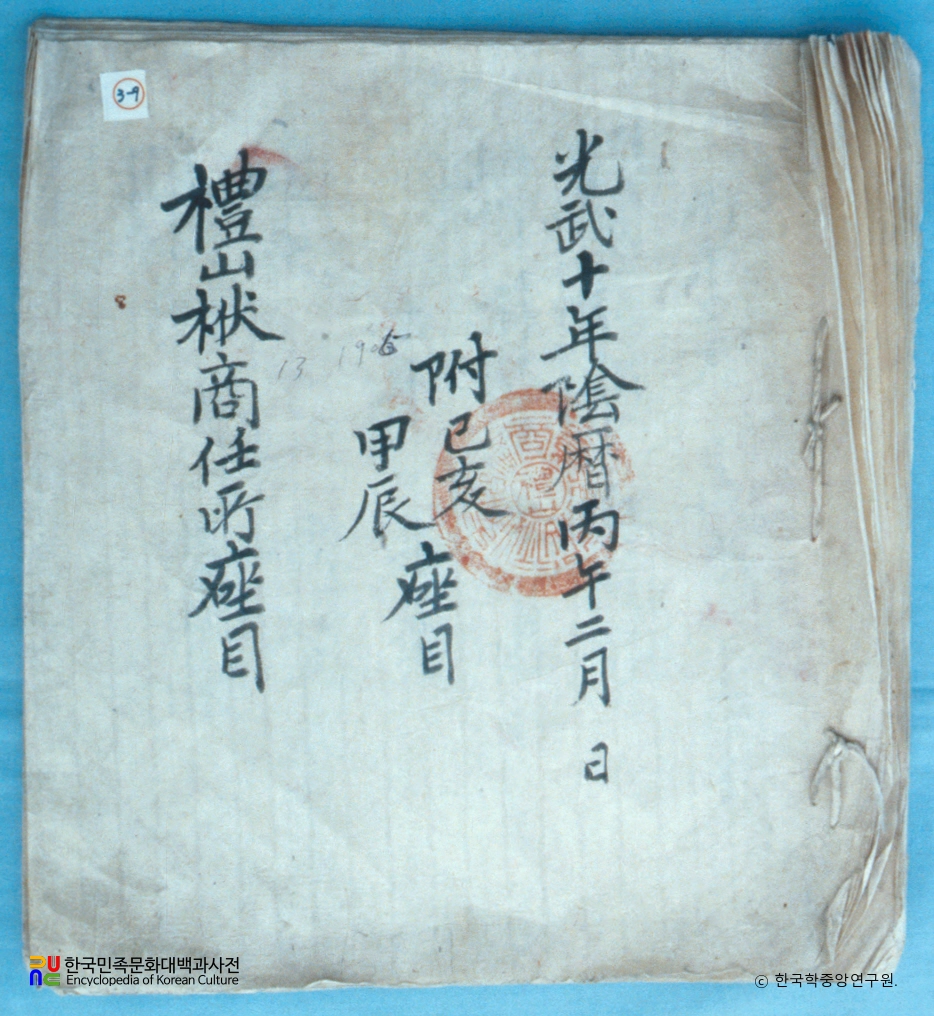 光武十年陰曆丙午二月 日
附己亥
甲辰
座目
禮山袱商任所座目
3-9
13 1906
한국민족문화대백과사전
Encyclopedia of Korean Culture
ⓒ 한국학중앙연구원.